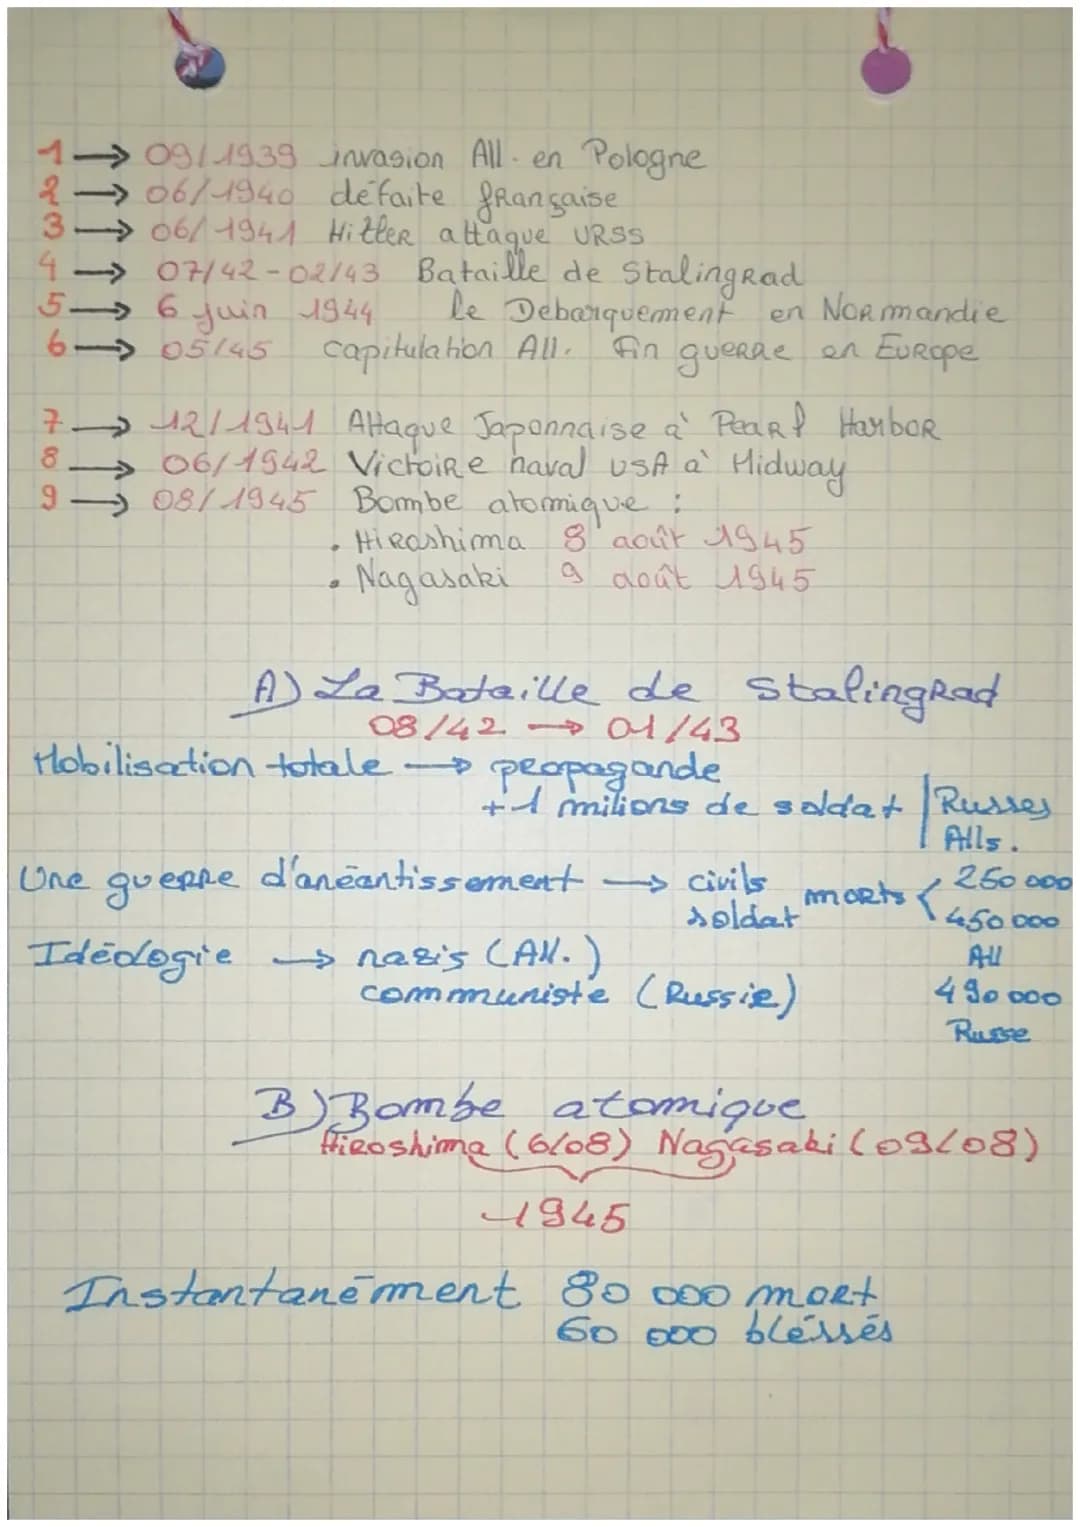 1 → 09/1939 invasion All. en Pologne
2 → 06/1940 défaite française
3 → 06/1941 Hitler attaque URSS
4 → 07/42-02/43 Bataille de Stalingrad
5 → 6 juin 1944 le Debarquement en Normandie
6 → 05/45 capitulation All. Fin guerre en Europe
7 → 12/1941 Attaque Japonnaise à Pearl Harbor
8 → 06/1942 Victoire naval USA à Midway
9 → 08/1945 Bombe atomique :
• Hiroshima 8 août 1945
• Nagasaki 9 août 1945
A) La Bataille de Stalingrad
08/42 → 01/43
Mobilisation totale → propagande
+ 1 milions de soldat | Russes
Alls.
Une guerre d'anéantissement → civils morts < 250 000
soldat 450 000
All
Idéologie → nazis (All.)
communiste (Russie) 490 000
Russe
B) Bombe atomique
Hiroshima (6/08) Nagasaki (09/08)
1945
Instantanément 80 000 mort
60 000 bléssés